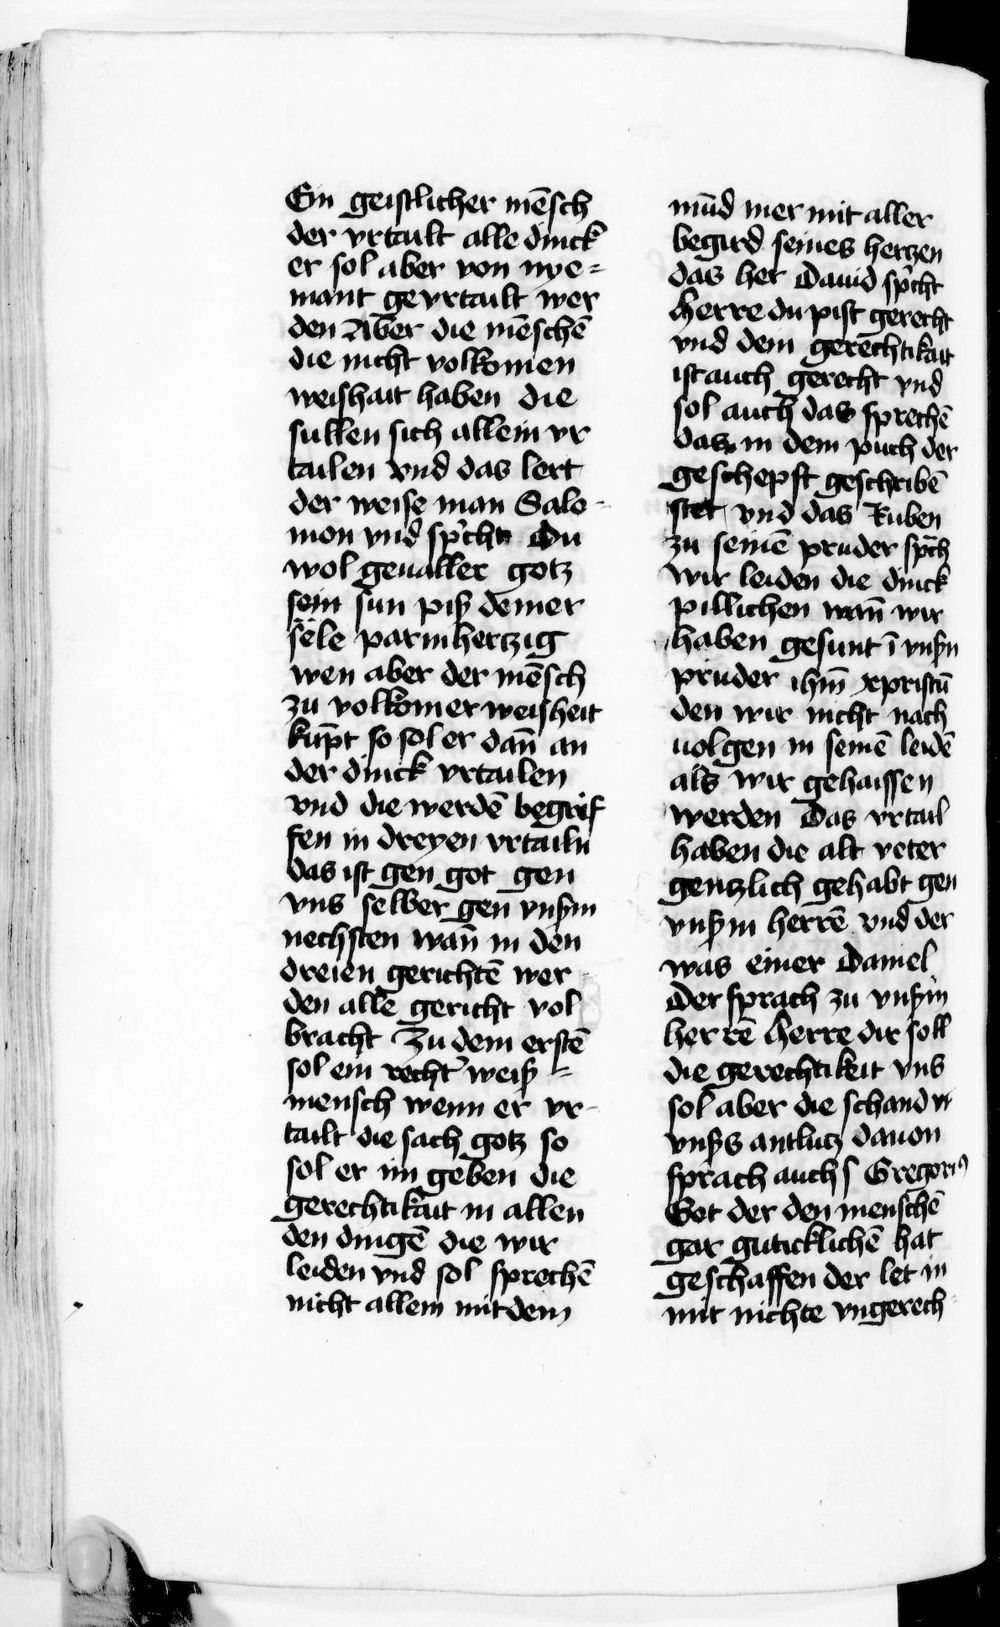 Ein geistlicher mēsch
der vrtailt alle dinck
er sol aber von nye=
mant gevrtailt wer
den Aber die mēschē
die nicht volkomen
weishait haben die
sullen sich allein vr
tailen vnd das lert
der weise man Salo-
mon vnd sp̄icht Du
wol geualler gotz
sein sun piß deiner
sele parmhertzig
wen aber der mēsch
zu volkomer weisheit
kūpt so sol er dan̄ an
der dinck vrtailen
vnd die werdē begrif
fen in dreyen vrtailn
das ist gen got gen
vns selber gen vnßm
nechsten wan̄ in den
dreien gerichtē wer-
den alle gericht vol
bracht Zu dem erstē
sol ein recht' weiß
mensch wenn er vr-
tailt die sach gotz so
sol er im geben die
gerechtikait in allen
den dingē die wir
leiden vnd sol sprechē
nicht allein mit dem
mūd mer mit aller
begird seines hertzen
das her Dauid sp̄icht
Herre du pist gerecht
vnd dein gerechtikait
ist auch gerecht vnd
sol auch das sprechē
das in dem puch der
geschepft geschribē
stet vnd das Ruben
zu seinē pruder sp̄ch
Wir leiden die dinck
pillichen wan̄ wir
haben gesunt ī vnßn
pruder ihm̄ xpristū
den wir nicht nach
uolgen in seinē leidē
als wir gehaissen
werden Das vrtail
haben die alt veter
gentzlich gehabt gen
vnßm herrē vnd der
was einer Daniel
Der sprach zu vnßm
herrē Herre dir soll
die gerechtikeit vns
sol aber die schand vn
vnßs antlutz dauon
sprach auch S Gregori⁹
Got der den menschē
gar guticklichē hat
geschaffen der let in
mit nichte vngerech-